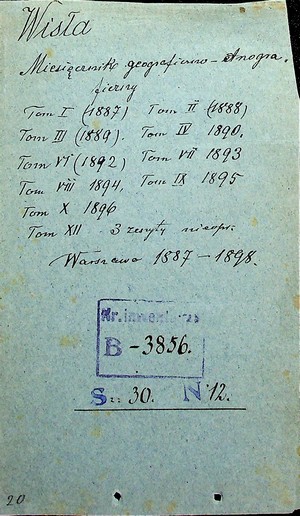 Wisła
Miesięcznik geograficzno-etnogra-
ficzny
Tom I (1887) Tom II (1888)
Tom III (1889). Tom IV 1890.
Tom VI (1892) Tom VII 1893
Tom VIII 1894, Tom IX 1895
Tom X 1896
Tom XII 3 zeszyty nieopr.
Warszawa 1887-1898.
Nr. inwentarza
B-3856.
S 30. N 12.
20